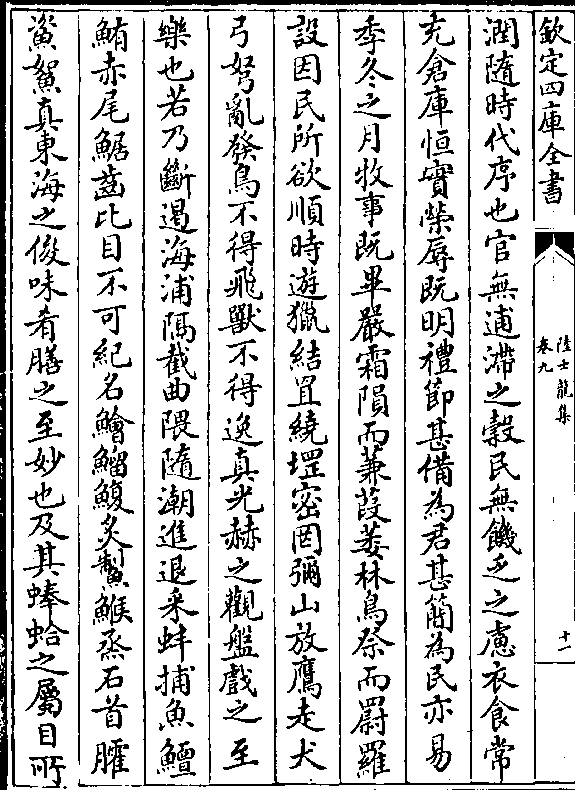 欽定四庫全書
陸士龍集
卷九
十一
潤隨時代序也官無逋滯之糓民無饑乏之慮衣食常
充倉庫恒實榮辱既明禮節甚備為君甚簡為民亦易
季冬之月牧事既畢嚴霜隕而蒹葭萎林鳥祭而罻羅
設因民所欲順時遊獵結罝繞𡊨密罔彌山放鷹走犬
弓弩亂發鳥不得飛獸不得逸真光赫之觀盤戲之至
樂也若乃斷遏海浦隔截曲隈隨潮進退采蚌捕魚鱣
鮪赤尾鯃齒比目不可紀名鱠鰡鰒炙䱥鯸烝石首臛
鯊䱟真東海之俊味肴膳之至妙也及其蜯蛤之屬目所